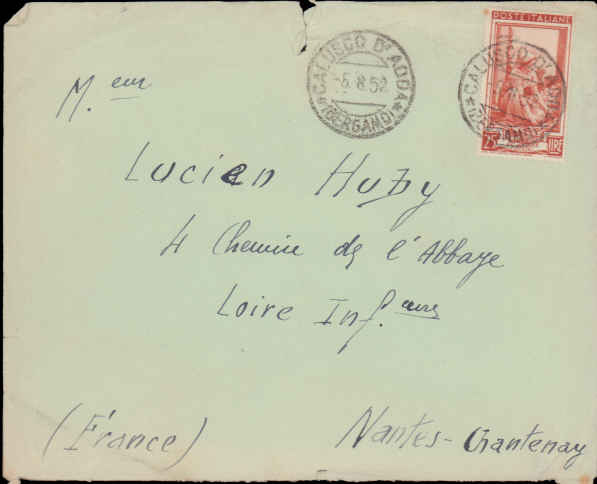 POSTE ITALIANE
25 LIRE
CALUSCO D'ADDA
-5.8.52
*(BERGAMO)*
CALUSCO D'ADDA
M.eur
Lucien Huby
4 Chemin de l'Abbaye
Loire Inf.eure
(France)
Nantes-Chantenay